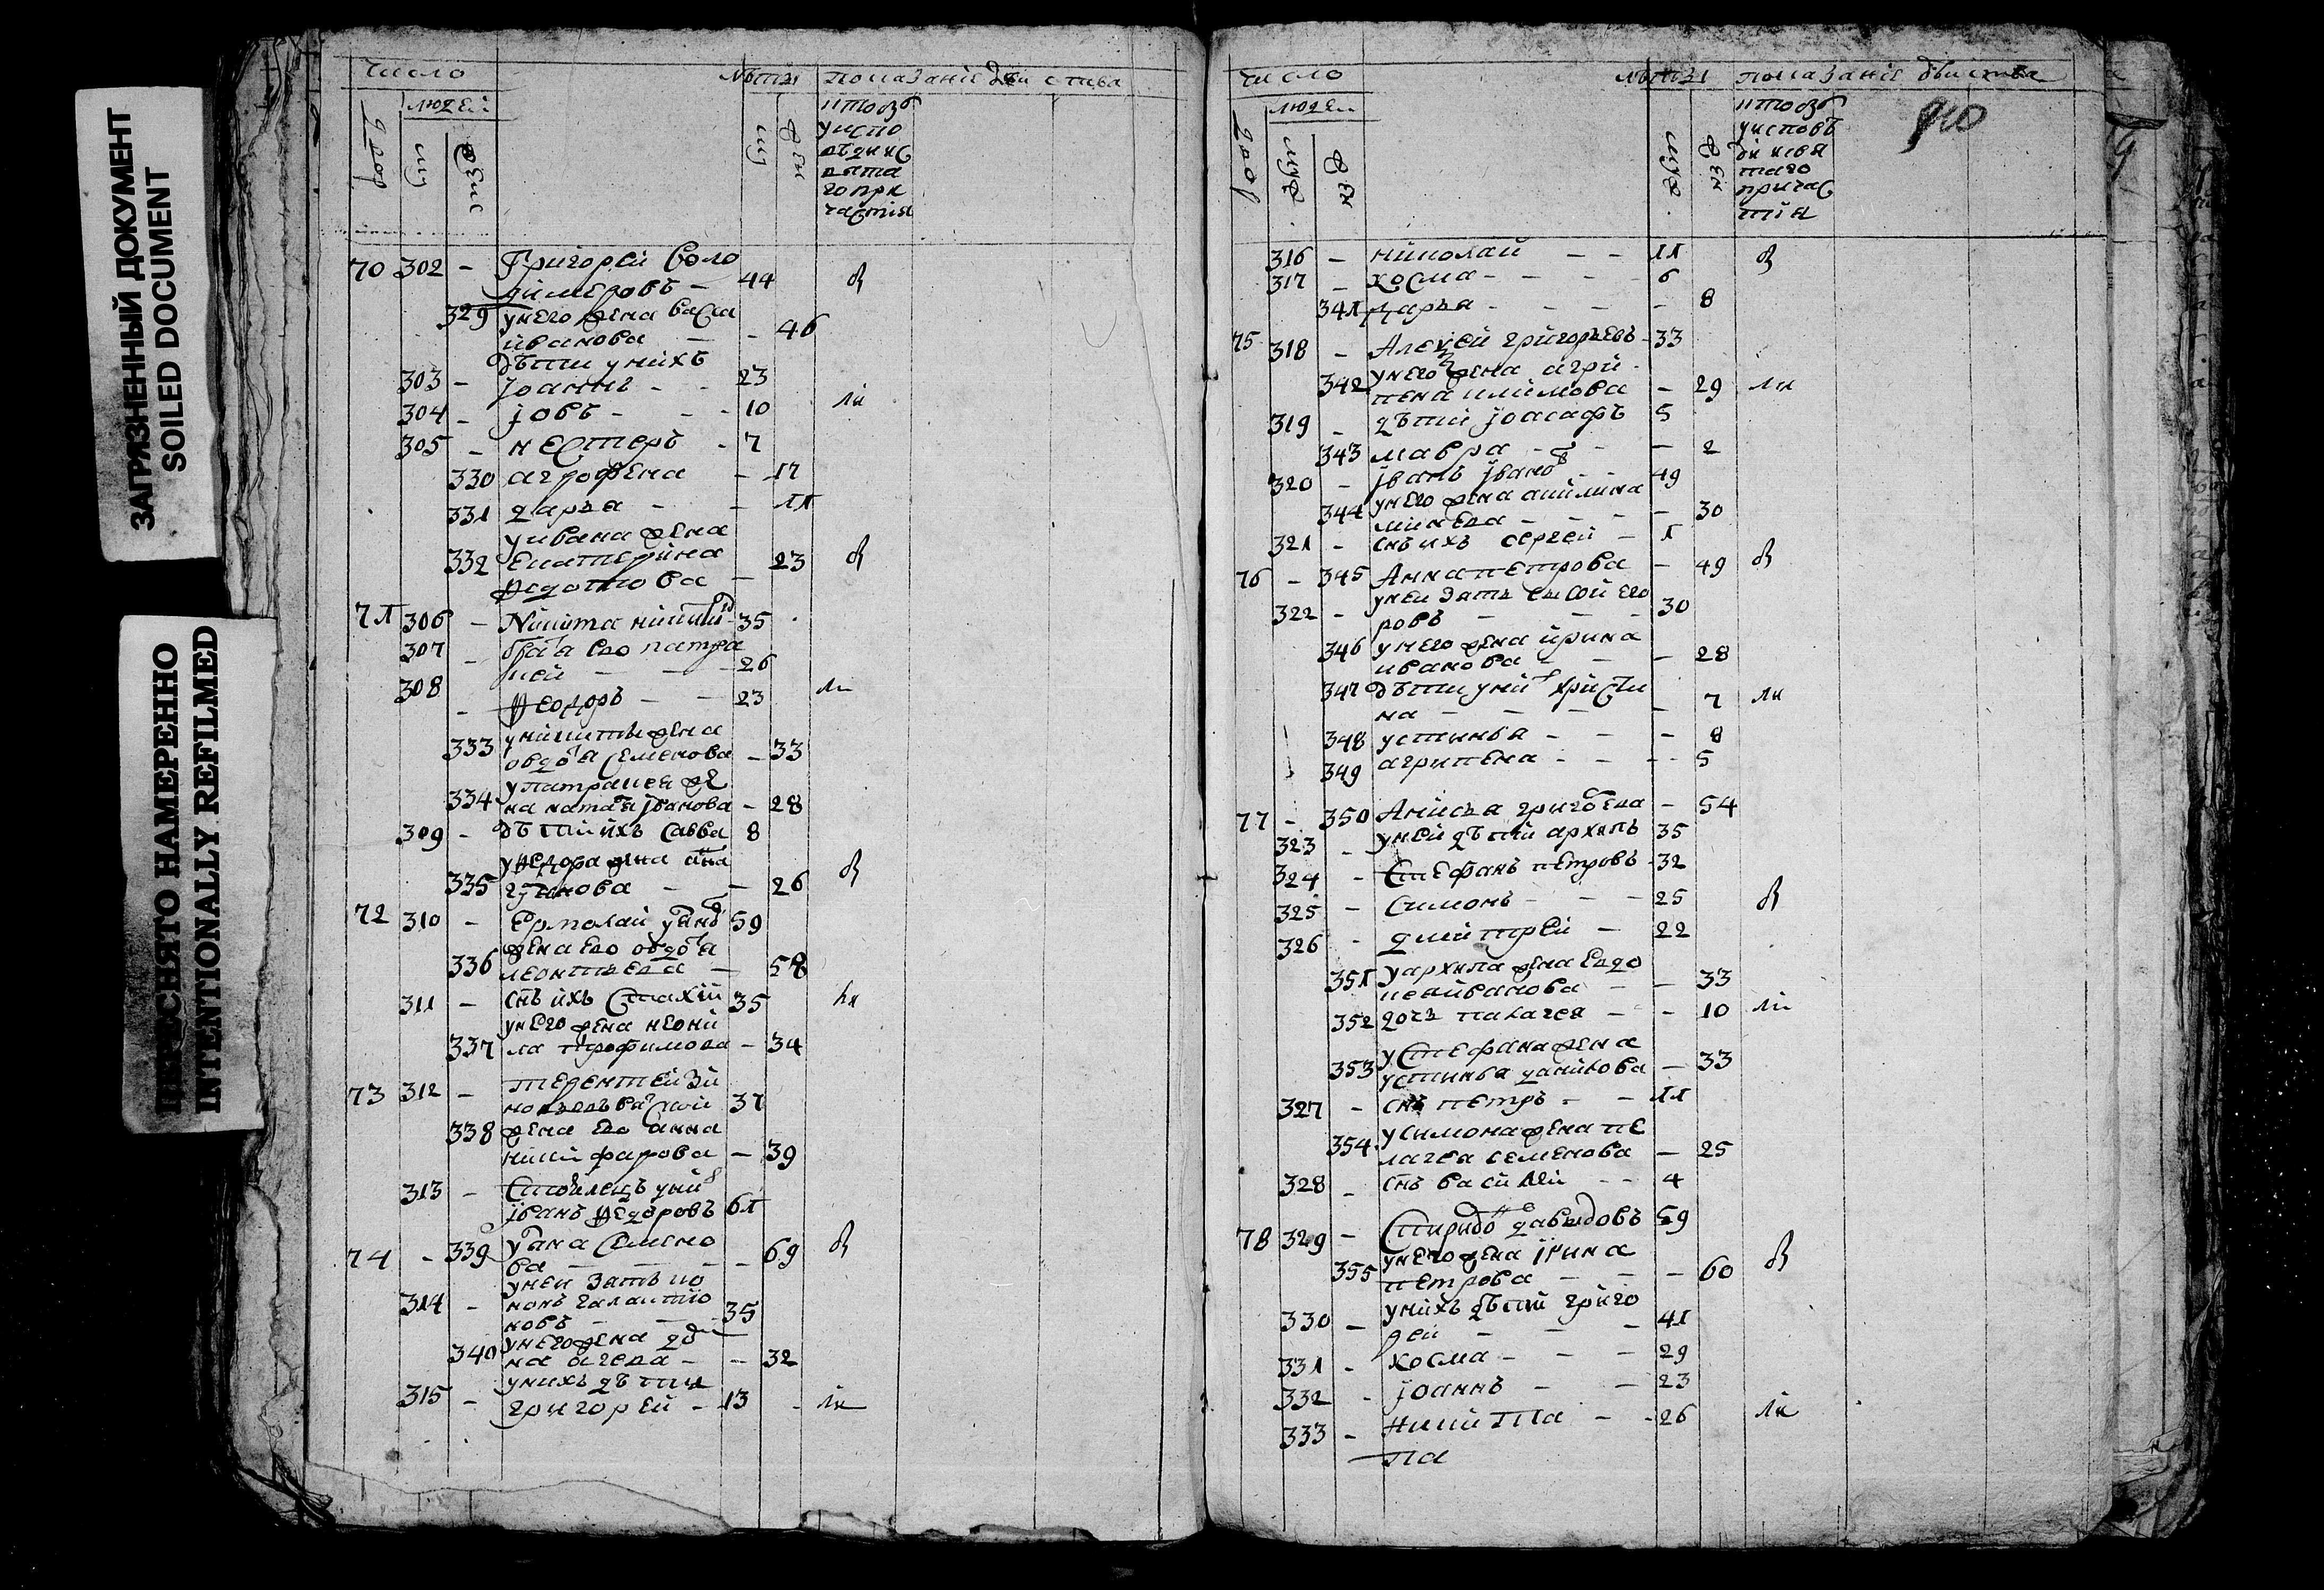 ЗАГРЯЗНЕННЫЙ ДОКУМЕНТ
SOILED DOCUMENT
ПЕРЕСНЯТО НАМЕРЕННО
INTENTIONALLY REFILMED
число лѣта показаніе дѣиства
людей
двор му женс му жен
ктобъ
уиспо
вѣдиис
вята
гопри
частія
70 302 – Григорей Воло
димеровъ – 44 в
329 унего жена Васса
иванова – – 46
дѣти унихъ
303 – Іоаннъ – – 23
304 – Іовъ – – – 10 ли
305 – нестеръ – 7
330 агрофена – 17
331 дарья – – 11
уивана жена
332 Екатерина 23 в
Федотова –
71 306 – Никита 35
307 – братья Его патра
кей – – – 26
308 – Федоръ – – 23 ли
333 уникиты жена
овдотья Семенова – 33
334 упатракея же
на наталья Іванова – 28
309 – дѣти ихъ Савва 8
уФедора жена анна
335 – – 26 в
72 310 – Ермолай 59
жена Ево овдотья
336 леонтьева – – 58
311 – снъ ихъ Стахій 35 ли
унего жена неони
337 ла трофимова – 34
73 312 – терентей Зи
37
338 жена Ево анна
никифарова – 39
313 – уних
Іванъ Федоровъ 61
74 – 339 Семено
ва – – – – 69 в
уней Зять ио
314 –
новъ – – – 35
340 унего жена
на – – 32
315 – унихъ дѣти
григорей – 13 – ли
число лѣта показаніе дѣиства
людей 910
двор муж жен муж жен
ктобъ
уисповѣ
ди исвя
таго
причас
тія
316 – николай – – 11 в
317 – косма – – – – 6
341 дарья – – – – – 8
75 318 – Алексей григорьевъ – 33
342 унего жена агри
пена климова – 29 ли
319 – дѣти Іоасафъ 5
343 мавра – – – 2
320 – Іванъ Івано – – 49
344 унего жена акилина
минева – – – – 30
321 – снъ ихъ сергей – 1
76 – 345 Анна петрова – 49 в
322 – уней зять Сысой Его
ровъ – – – 30
346 унего жена ирина
иванова – – – 28
347 дѣти уних Христи
на – – – – 7 ли
348 устинья – – – 8
349 агрипена – – – 5
77 – 350 Анисья григорьева – 54
323 – уней дѣти архипъ 35
324 – Стефанъ петровъ – 32
325 – Симонъ – – – 25 в
326 – дмитрей – 22
351 уархипа жена Евдо
кея иванова – – 33
352 дочь палагея – – 10 ли
353 уСтефана жена
устинья данилова – 33
327 – снъ петръ – – 11
354 усимона жена пе
лагея семенова – 25
328 – снъ василей – – 4
78 329 – Спиридон давыдовъ 59
355 унего жена ірина
петрова – – – 60 в
330 – унихъ дѣти григо
рей – – – 41
331 – косма – – – 29
332 – іоаннъ – – 23
333 – никита – – 26 ли
па